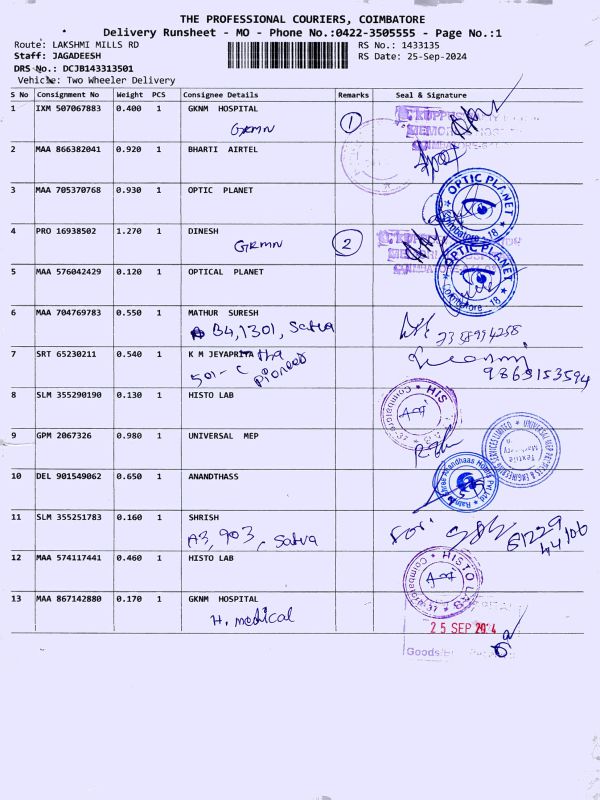 THE PROFESSIONAL COURIERS, COIMBATORE
Delivery Runsheet - MO - Phone No.:0422-3505555 - Page No.:1
Route: LAKSHMI MILLS RD RS No.: 1433135
Staff: JAGADEESH RS Date: 25-Sep-2024
DRS No.: DCJB143313501
Vehicle: Two Wheeler Delivery
S No Consignment No Weight PCS Consignee Details Remarks Seal & Signature
1 IXM 507067883 0.400 1 GKNM HOSPITAL 1
GRMN
2 MAA 866382041 0.920 1 BHARTI AIRTEL
3 MAA 705370768 0.930 1 OPTIC PLANET
OPTIC PLANET Coimbatore - 18
4 PRO 16938502 1.270 1 DINESH 2
GRMN
5 MAA 576042429 0.120 1 OPTICAL PLANET
OPTIC PLANET Coimbatore - 18
6 MAA 704769783 0.550 1 MATHUR SURESH
B4, 1301, Satva
7 SRT 65230211 0.540 1 K M JEYAPRITA tha
501-C pioneer
9869153594
8 SLM 355290190 0.130 1 HISTO LAB
9 GPM 2067326 0.980 1 UNIVERSAL MEP
10 DEL 901549062 0.650 1 ANANDHASS
11 SLM 355251783 0.160 1 SHRISH
A3, 903, Satva
12 MAA 574117441 0.460 1 HISTO LAB
HISTO LAB
13 MAA 867142880 0.170 1 GKNM HOSPITAL
H. medical
25 SEP
Goods